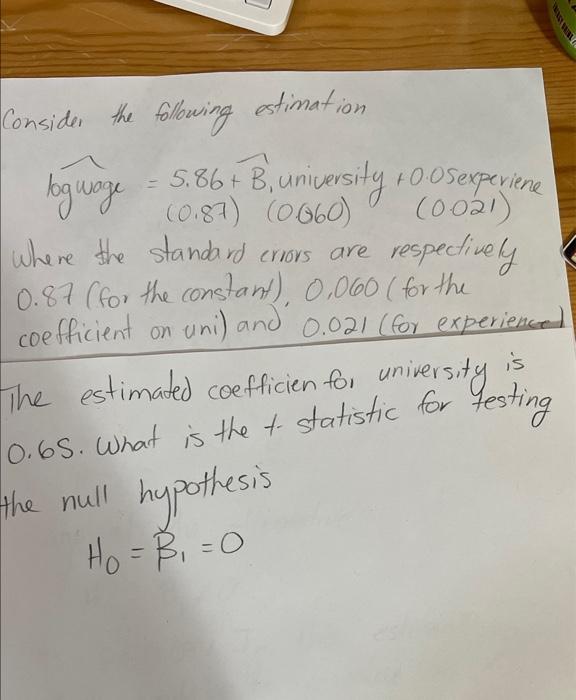 Consider the following estimation
log wage = 5.86 + B̂₁ university + 0.05 experiene
(0.87) (0.060) (0.021)
Where the standard errors are respectively
0.87 (for the constant), 0,060 (for the
coefficient on uni) and 0.021 (for experience)
The estimated coefficien for university is
0.65. What is the t- statistic for testing
the null hypothesis
H₀ = β₁ = 0